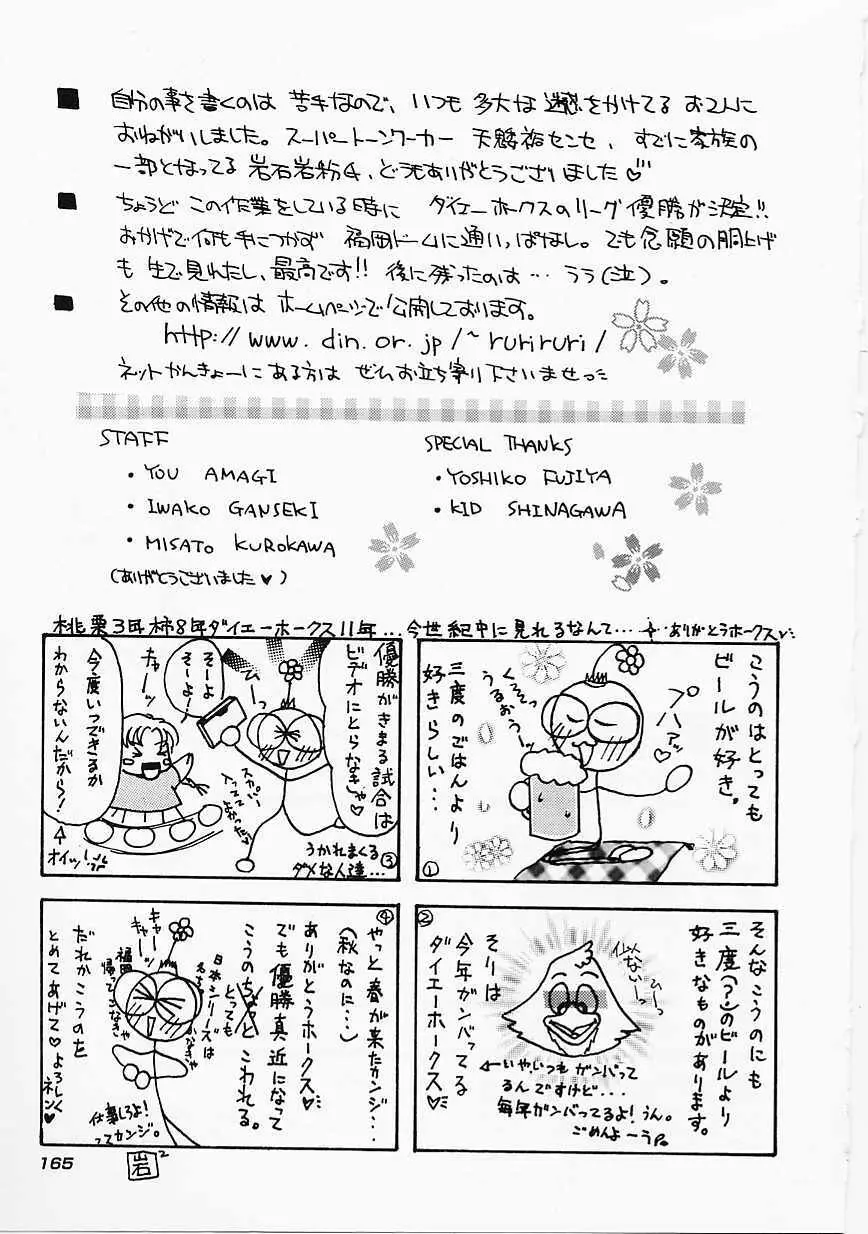 自分の事を書くのは 苦手なので、いつも 多大な 迷惑をかけてる お2人に
おねがいしました。スーパートーンワーカー 天麟裕センセ、すでに家族の
一部となってる 岩石岩粉4、どうもありがとうございました♡
ちょうど この作業をしている時に ダイエーホークスのリーグ優勝が決定!!
おかげで何も手につかず 福岡ドームに通いっぱなし。でも念願の胴上げ
も 生で見れたし、最高です!! 後に残ったのは… うう(泣)。
その他の情報は ホームページで公開しております。
http://www.din.or.jp/~ruriruri/
ネットかんきょーにある方は ぜひお立ち寄り下さいませっ
STAFF
・YOU AMAGI
・IWAKO GANSEKI
・MISATO KUROKAWA
(ありがとうございました♥)
SPECIAL THANKS
・YOSHIKO FUJIYA
・KID SHINAGAWA
桃栗3年柿8年ダイエーホークス11年…今世紀中に見れるなんて…ありがとうホークス♡
こうのはとっても
ビールが好き。
三度のごはんより
好きらしい…
プハァッ♡
くぅそっ
うるおうーっ
①
②
そんなこうのにも
三度(?)のビールより
好きなものがあります。
そりは
今年ガンバってる
ダイエーホークス♡
似てないーっ
ひーっ
←いや、いつもガンバって
るんですけど…
毎年ガンバってるよ!うん。
ごめんよーう
優勝がきまる試合は
ビデオにとらなきゃ♡
ひーっ
そーよ
そーよ!
きゃーッ
今度いつできるか
わからないんだから!
スカパー!
入ってて
よかった♡
オイッ!
うかれまくる
ダメな人達…
③
④
やっと春が来たカンジ…
(秋なのに…)
ありがとうホークス♡
でも優勝真近になって
こうのちょっと こわれる。
とっても
日本シリーズは
福岡
帰ってこなきゃ
キャーッ
キャーッ
だれかこうのを
とめてあげて♡よろしく
ネン♥
仕事しろよ!
ってカンジ。
165
岩
2